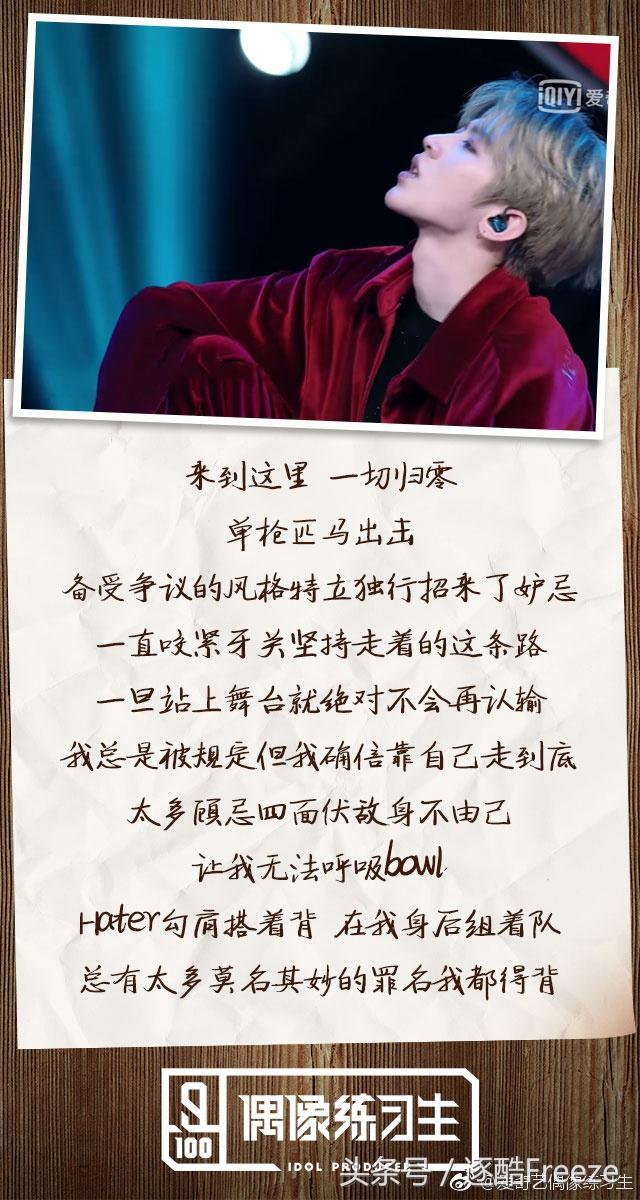 iQIYI 爱奇
来到这里 一切归零
单枪匹马出击
备受争议的风格特立独行招来了妒忌
一直咬紧牙关坚持走着的这条路
一旦站上舞台就绝对不会再认输
我总是被规定但我确信靠自己走到底
太多顾忌四面伏敌身不由己
让我无法呼吸bowl
Hater勾肩搭着背 在我身后组着队
总有太多莫名其妙的罪名我都得背
100 偶像练习生
IDOL PRODUCER
头条号/逐酷Freeze
@爱奇艺偶像练习生